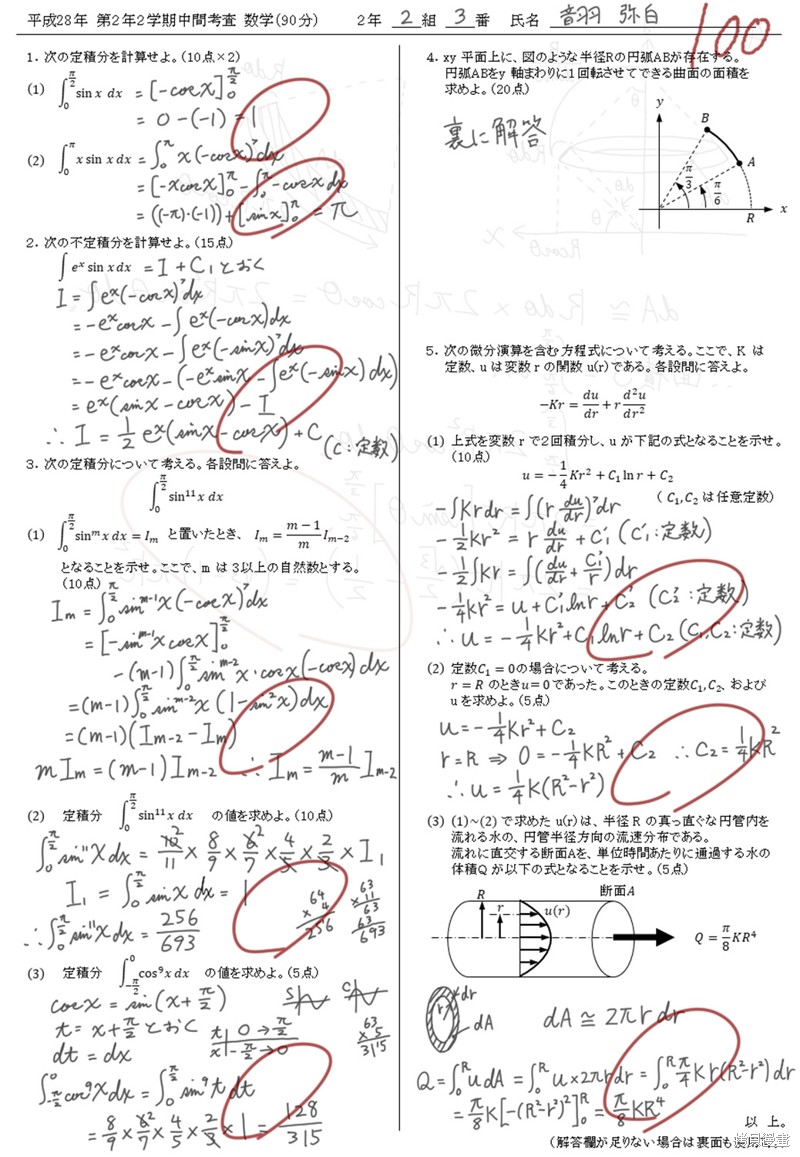 平成28年 第2年2学期中間考査 数学(90分) 2年 2 組 3 番 氏名 音羽 弥白
100
1. 次の定積分を計算せよ。(10点×2)
(1) ∫_0^{π/2} sin x dx = [-cosx]_0^{π/2}
= 0-(-1) = 1
(2) ∫_0^π x sin x dx = ∫_0^π x(-cosx)'dx
= [-xcosx]_0^π - ∫_0^π -cosx dx
= ((-π)·(-1)) + [sinx]_0^π = π
2. 次の不定積分を計算せよ。(15点)
∫ e^x sin x dx = I + C₁ とおく
I = ∫e^x(-cosx)'dx
= -e^x cosx - ∫e^x(-cosx)dx
= -e^x cosx - ∫e^x(-sinx)'dx
= -e^x cosx - (-e^x sinx - ∫e^x(-sinx)dx)
= e^x(sinx - cosx) - I
∴ I = 1/2 e^x(sinx - cosx) + C (C:定数)
3. 次の定積分について考える。各設問に答えよ。
∫_0^{π/2} sin^{11} x dx
(1) ∫_0^{π/2} sin^m x dx = I_m と置いたとき、 I_m = (m-1)/m I_{m-2}
となることを示せ。ここで、m は3以上の自然数とする。
(10点)
I_m = ∫_0^{π/2} sin^{m-1}x(-cosx)'dx
= [-sin^{m-1}x cosx]_0^{π/2}
-(m-1)∫_0^{π/2} sin^{m-2}x·cosx(-cosx)dx
= (m-1)∫_0^{π/2} sin^{m-2}x (1-sin²x)dx
= (m-1)(I_{m-2} - I_m)
mI_m = (m-1)I_{m-2} ∴ I_m = (m-1)/m I_{m-2}
(2) 定積分 ∫_0^{π/2} sin^{11} x dx の値を求めよ。(10点)
∫_0^{π/2} sin^{11}xdx = 10/11 × 8/9 × 6/7 × 4/5 × 2/3 × I₁
I₁ = ∫_0^{π/2} sinx dx = 1
∴ ∫_0^{π/2} sin^{11}xdx = 256/693
64
× 4
256
63
×11
63
63
693
(3) 定積分 ∫_{-π/2}^0 cos^9 x dx の値を求めよ。(5点)
cosx = sin(x + π/2)
t = x + π/2 とおく
dt = dx
t | 0 → π/2
x | -π/2 → 0
S
C
63
× 5
315
∫_{-π/2}^0 cos^9 xdx = ∫_0^{π/2} sin^9 t dt
= 8/9 × 6/7 × 4/5 × 2/3 × 1 = 128/315
4. xy 平面上に、図のような半径Rの円弧ABが存在する。
円弧ABをy 軸まわりに1回転させてできる曲面の面積を
求めよ。(20点)
裏に解答
y
B
A
π/3
π/6
R
x
5. 次の微分演算を含む方程式について考える。ここで、K は
定数、u は変数 r の関数 u(r)である。各設問に答えよ。
-Kr = du/dr + r d²u/dr²
(1) 上式を変数 r で2回積分し、u が下記の式となることを示せ。
(10点)
u = -1/4 Kr² + C₁ ln r + C₂
(C₁, C₂ は任意定数)
-∫Krdr = ∫(r du/dr)'dr
-1/2 Kr² = r du/dr + C₁' (C₁':定数)
-1/2 ∫Kr = ∫(du/dr + C₁'/r)dr
-1/4 Kr² = u + C₁' ln r + C₂' (C₂':定数)
∴ u = -1/4 Kr² + C₁ ln r + C₂ (C₁, C₂:定数)
(2) 定数C₁ = 0の場合について考える。
r = R のときu = 0であった。このときの定数C₁, C₂、および
uを求めよ。(5点)
u = -1/4 Kr² + C₂
r = R ⇒ 0 = -1/4 KR² + C₂ ∴ C₂ = 1/4 KR²
∴ u = 1/4 K(R² - r²)
(3) (1)~(2) で求めた u(r)は、半径 R の真っ直ぐな円管内を
流れる水の、円管半径方向の流速分布である。
流れに直交する断面Aを、単位時間あたりに通過する水の
体積Q が以下の式となることを示せ。(5点)
断面A
R
r
u(r)
Q = π/8 KR⁴
r
dr
dA
dA ≅ 2πrdr
Q = ∫_0^R u dA = ∫_0^R u×2πrdr = ∫_0^R π/4 Kr(R²-r²)dr
= π/8 K[-(R²-r²)²]_0^R = π/8 KR⁴
以 上。
(解答欄が足りない場合は裏面も使用